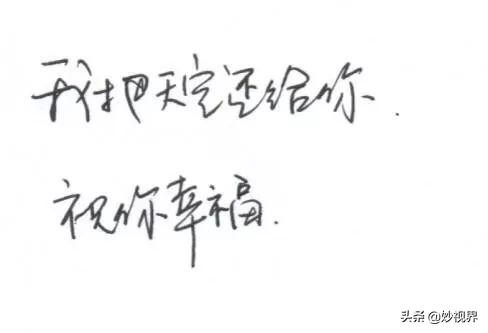 我把天空还给你.
祝你幸福.
头条 @妙视界